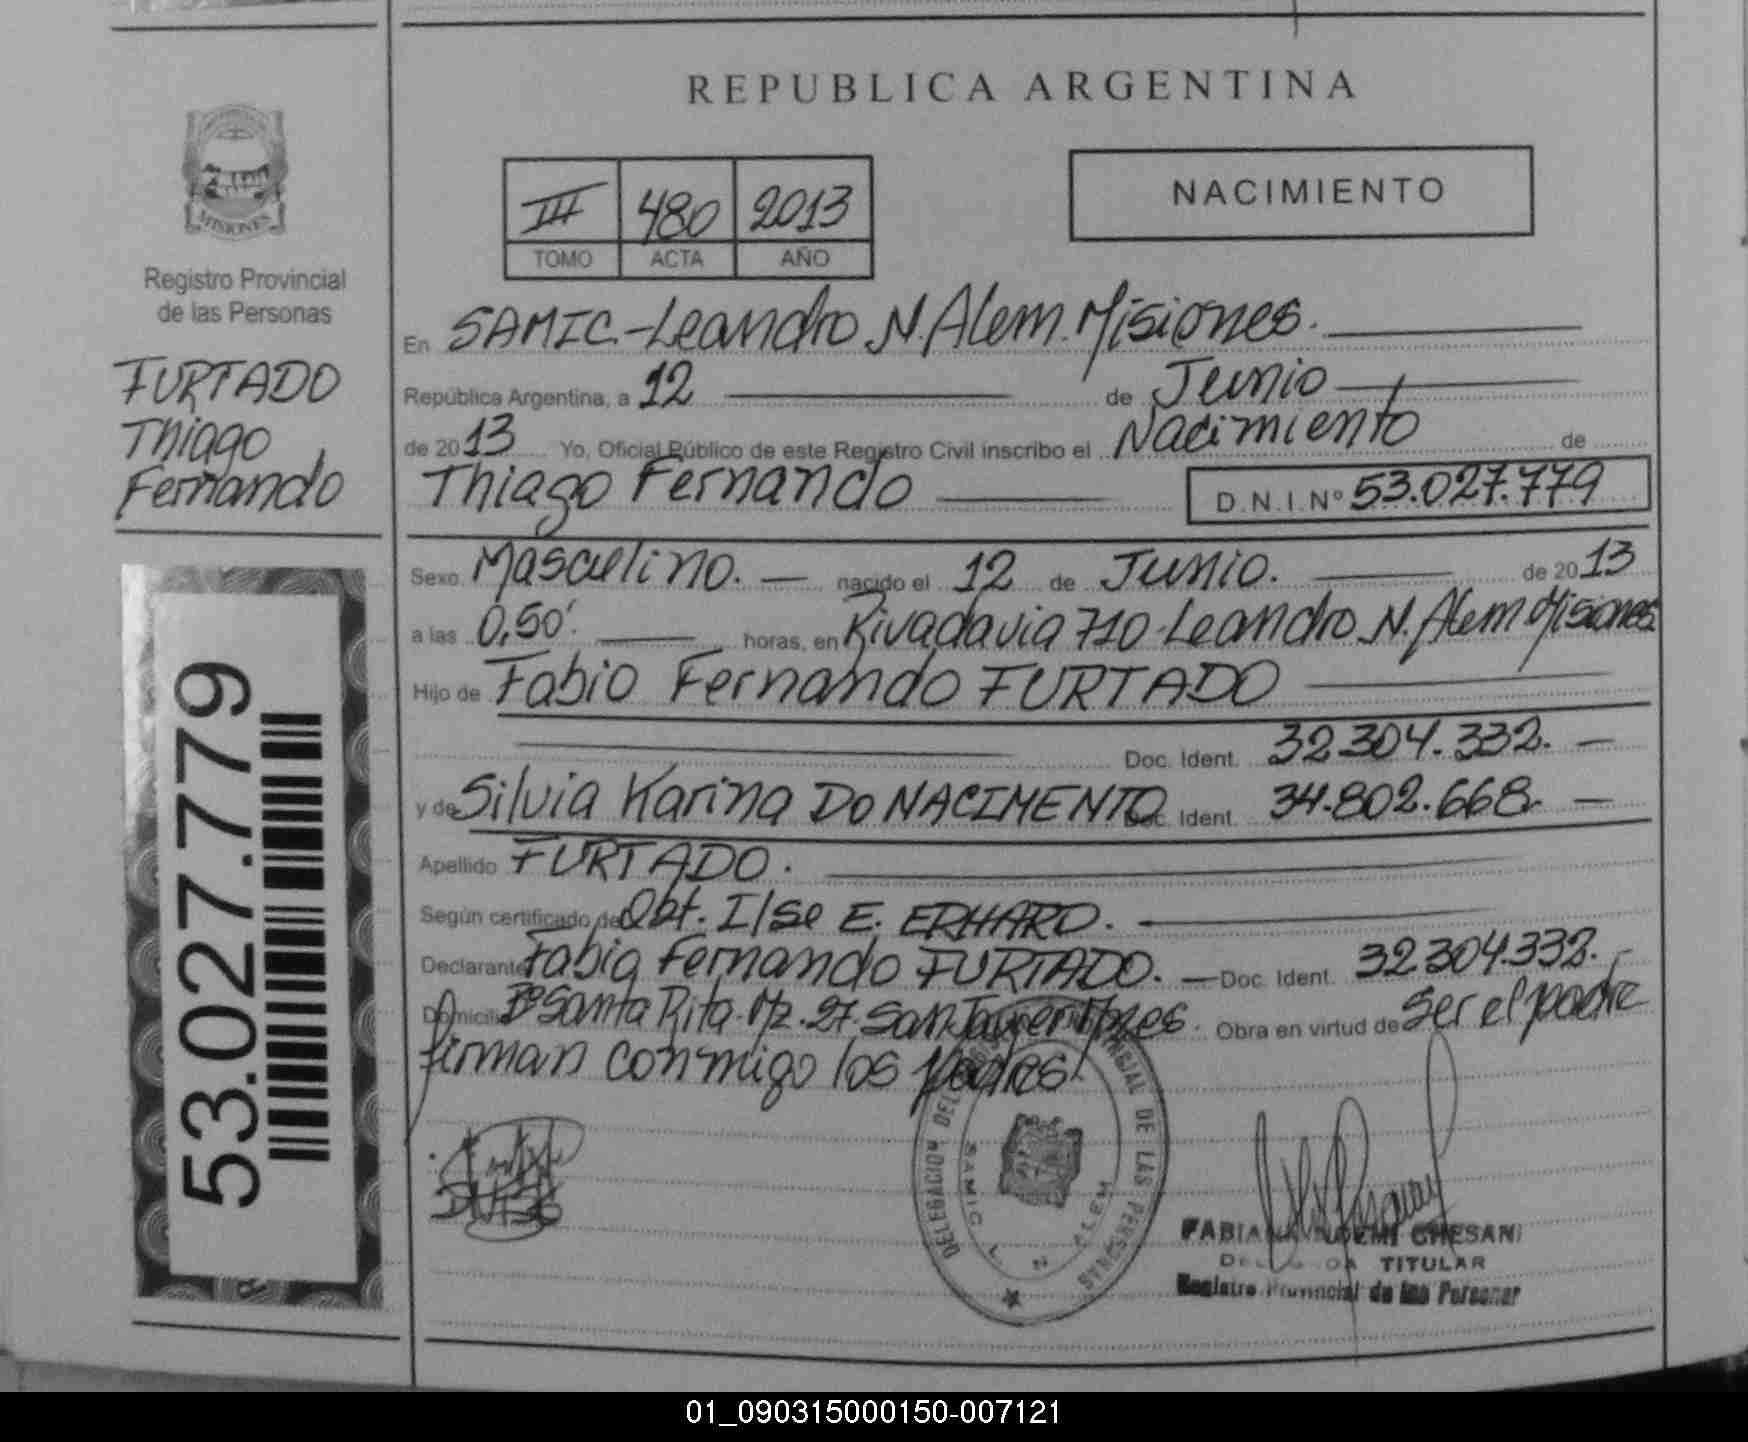 REPUBLICA ARGENTINA
NACIMIENTO
III 480 2013
TOMO ACTA AÑO
MISIONES
Registro Provincial
de las Personas
FURTADO
Thiago
Fernando
53.027.779
En SAMIC-Leandro N. Alem. Misiones.
República Argentina, a 12 de Junio
de 2013 Yo, Oficial Público de este Registro Civil inscribo el Nacimiento de
Thiago Fernando D.N.I. Nº 53.027.779
Sexo Masculino. nacido el 12 de Junio. de 2013
a las 0,50'. horas, en Rivadavia 710-Leandro N. Alem Misiones
Hijo de Fabio Fernando FURTADO
Doc. Ident. 32.304.332.
y de Silvia Karina DO NACIMENTO Doc. Ident. 34.802.668.
Apellido FURTADO.
Según certificado de Obt. Ilse E. ERHARD.
Declarante Fabio Fernando FURTADO. Doc. Ident. 32304.332.
Domicilio Bº Santa Rita-Mz. 27-San Javier Mnes. Obra en virtud de ser el padre
firman conmigo los padres.
DELEGACION DEL REGISTRO PROVINCIAL DE LAS PERSONAS
SAMIC L N ALEM
FABIANA NOEMI CHESANI
DELEGADA TITULAR
Registro Provincial de las Personas
01_090315000150-007121